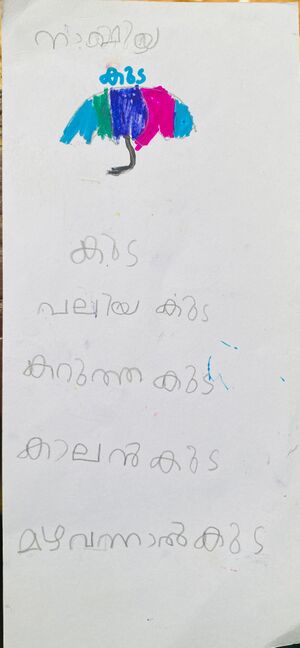 കുട
കുട
പലിയ കുട
കറുത്ത കുട
കാലൻ കുട
മഴ വന്നാൽ കുട